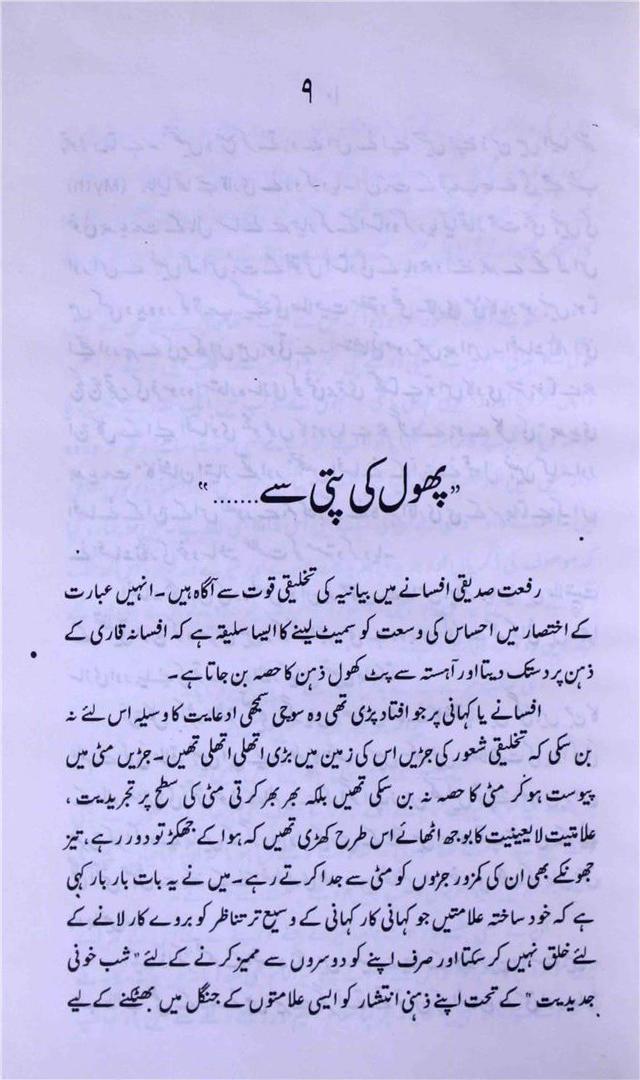 ۹
"پھول کی پتی سے ......."
رفعت صدیقی افسانے میں بیانیہ کی تخلیقی قوت سے آگاہ ہیں۔ انہیں عبارت
کے اختصار میں احساس کی وسعت کو سمیٹ لینے کا ایسا سلیقہ ہے کہ افسانہ قاری کے
ذہن پر دستک دیتا اور آہستہ سے پٹ کھول ذہن کا حصہ بن جاتا ہے۔
افسانے یا کہانی پر جو افتاد پڑی تھی وہ سوچی سمجھی ادعایت کا وسیلہ اس لئے نہ
بن سکی کہ تخلیقی شعور کی جڑیں اس کی زمین میں بڑی اتھلی اتھلی تھیں۔ جڑیں مٹی میں
پیوست ہو کر مٹی کا حصہ نہ بن سکی تھیں بلکہ بھر بھر کرتی مٹی کی سطح پر تجریدیت ،
علامتیت لایعینیت کا بوجھ اٹھائے اس طرح کھڑی تھیں کہ ہوا کے جھکڑ تو دور رہے، تیز
جھونکے بھی ان کی کمزور جڑوں کو مٹی سے جدا کرتے رہے۔ میں نے یہ بات بار بار کہی
ہے کہ خود ساختہ علامتیں جو کہانی کار کہانی کے وسیع تر تناظر کو بروے کار لانے کے
لئے خلق نہیں کر سکتا اور صرف اپنے کو دوسروں سے ممیز کرنے کے لئے "شب خونی
جدیدیت" کے تحت اپنے ذہنی انتشار کو ایسی علامتوں کے جنگل میں بھٹکنے کے لیے